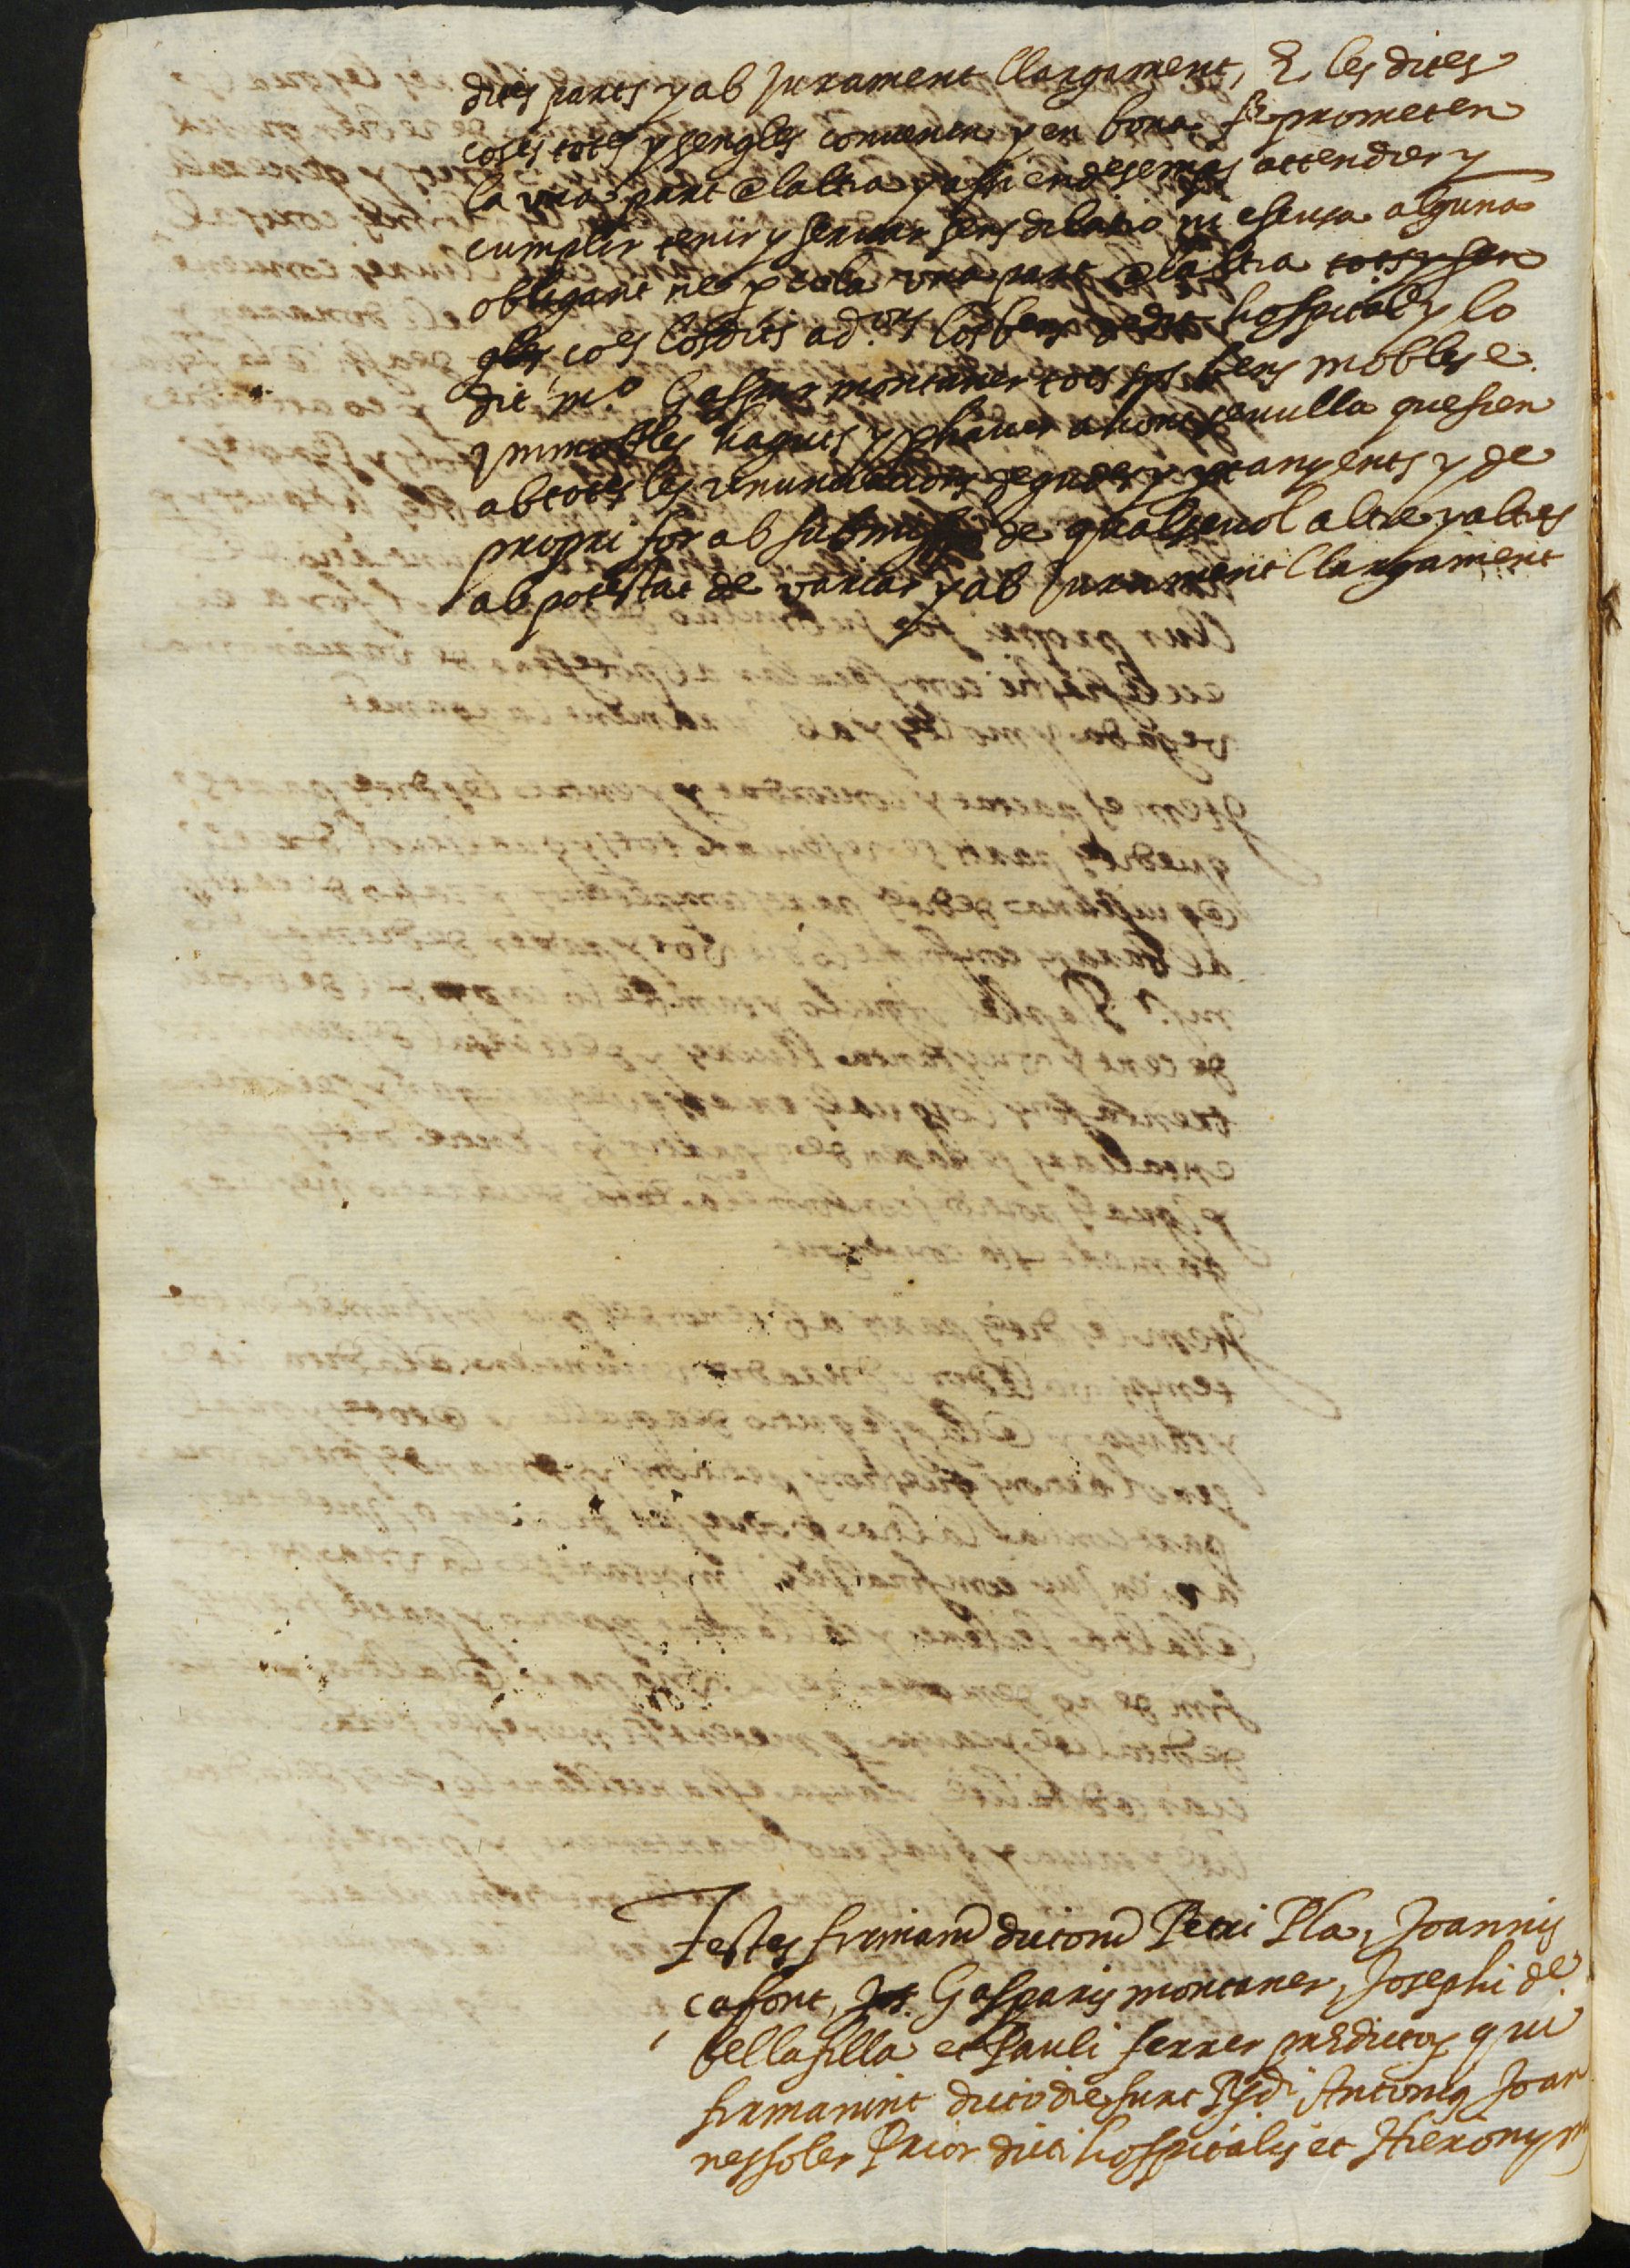 dites parts y ab Jurament llargament, E les dites
coses totes y sengles convenen y en bona fe prometen
la una part a laltra y assi endesemps attendrer y
cumplir tenir y servar sens dilatio ni escusa alguna
obligant ne la una part a laltra tots y sen
gles ço es los dits ad.ors los bens de dit hospital y lo
dit m.o Gaspar montaner tots sos bens mobles e
Immobles haguts y per haver ahont sevulla que sien
ab totes les renunciations degudes y pertanyents y de
propri for ab submissio de qualsevol altre y altres
ab potestat de variar y ab Jurament llargament
Testes firmarum dictorum Petri Pla, Joannis
cafont, Gasparis montaner, Josephi de
bellafilla et Pauli ferrer predictorum qui
firmarunt dicto die sunt Rdi Antonius Joan
nes soler Prior dicti hospitalis et Hieronym